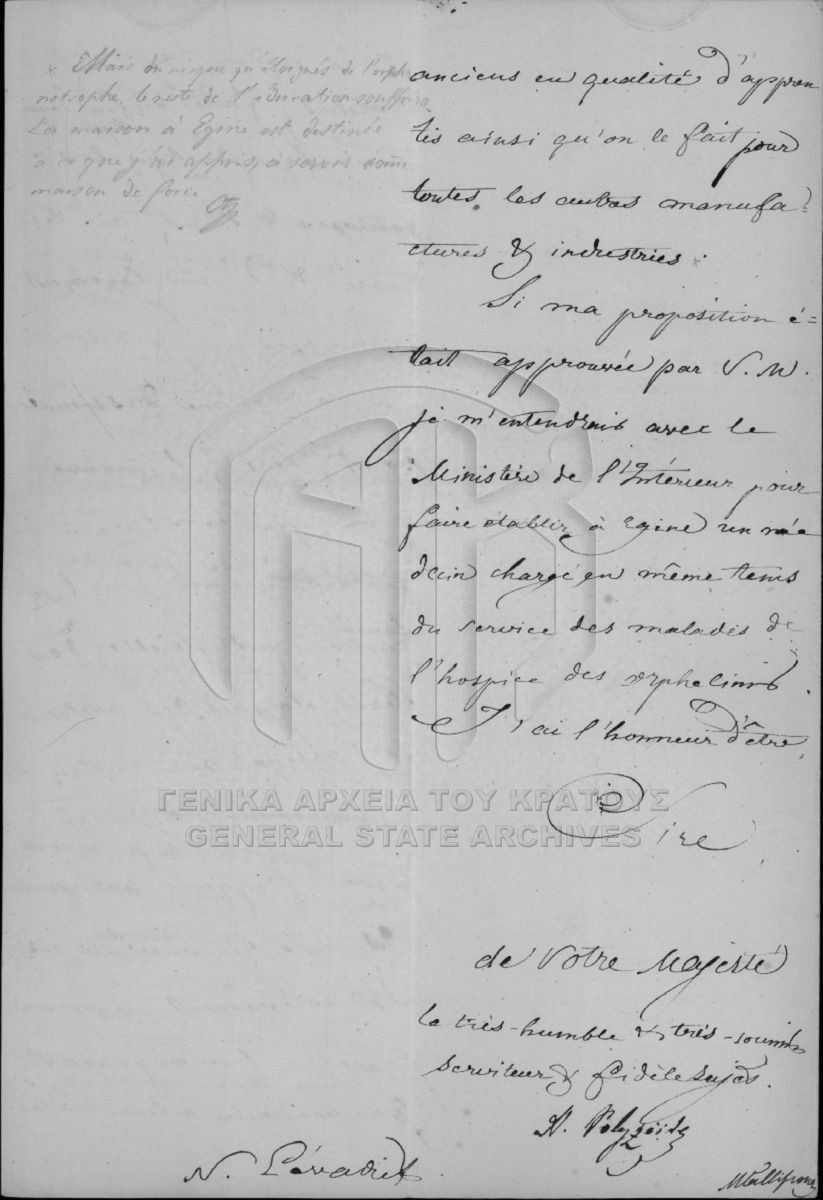 * Mais on risque qu'éloignés de l'orpha
notrophe, le reste de l'éducation souffrira
La maison à Egine est destinée
à ce que j'ai appris, à servir comme
maison de force
anciens en qualité d'appren
tis ainsi qu'on le fait pour
toutes les autres manufa-
ctures & industries *
Si ma proposition é=
tait approuvée par V. M.
je m'entendrais avec le
Ministère de l'Intérieur pour
faire établir à Egine un mé
decin chargé en même tems
du service des malades de
l'hospice des orphelins.
J'ai l'honneur d'être,
Sire
ΓΕΝΙΚΑ ΑΡΧΕΙΑ ΤΟΥ ΚΡΑΤΟΥΣ
GENERAL STATE ARCHIVES
de Votre Majesté
le très-humble & très-soumis
serviteur & fidèle sujet.
A. Polyzoidis
N.